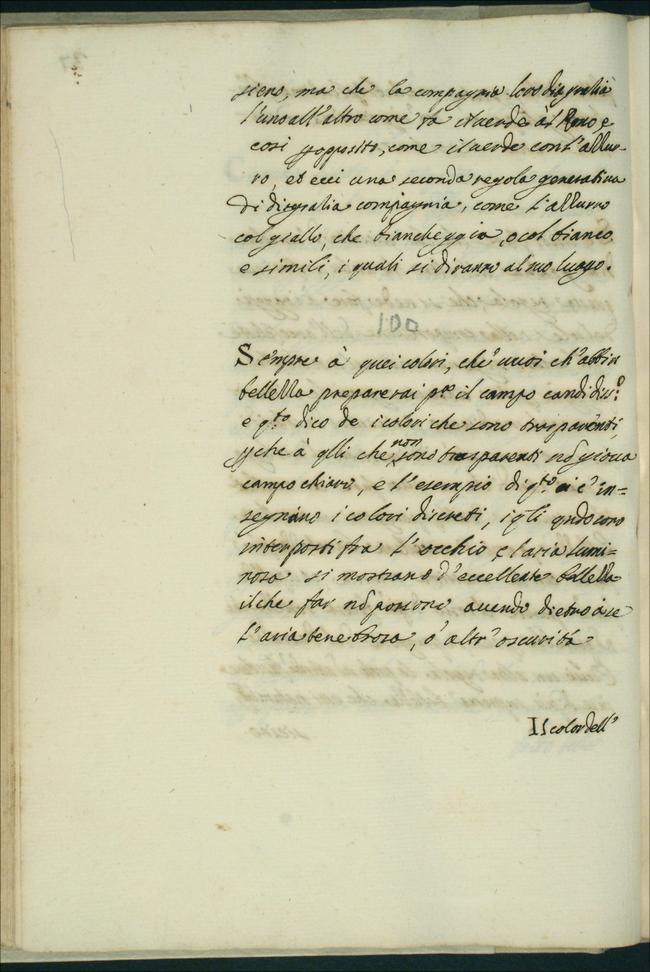 sieno, ma che la compagnia loro dia gratia
l'uno all'altro come fà il verde àl Rosso, e
così p opposito, come il verde con l'azzur-
ro, et ecci una seconda regola generativa
di disgratia compagnia, come l'azzurro
col giallo, che biancheggia, o col bianco
e simili, i quali si diranno al suo luogo.
100
Sempre à quei colori, che vuoi ch'abbia
bellezza preparerai p.º il campo candidis.º
e q.to dico de i colori che sono trasparenti,
p che à q̃lli che non sono trasparenti nõ giova
campo chiaro, e l'esempio di q.to ci è in=
segnano i colori discreti, i q̃li q̃ndo sono
interposti fra l'occhio e l'aria lumi=
nosa si mostrano d'eccellente bellezza
il che far nõ possono avendo dietro à se
l'aria tenebrosa, ò altr'oscurità
Il color dell'